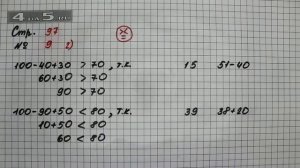 4 на 5.ru
Стр. 97
№ 9 2)
100-40+30 > 70, т.к. 15 51-40
60+30 > 70
90 > 70
100-90+50 < 80, т.к. 39 38+20
10+50 < 80
60 < 80